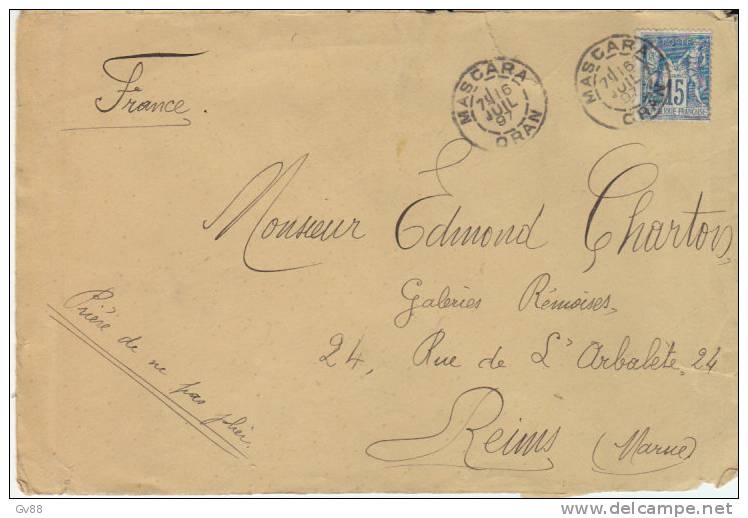 France.
MASCARA
7E 16
JUIL
97
ORAN
MASCARA
7E 16
JUIL
97
ORAN
POSTE
15
REPUBLIQUE FRANÇAISE
Monsieur Edmond Charton,
Galeries Rémoises,
24, Rue de L'Arbalète, 24
Reims (Marne)
Prière de ne pas plier.
Gv88
delcampe.net